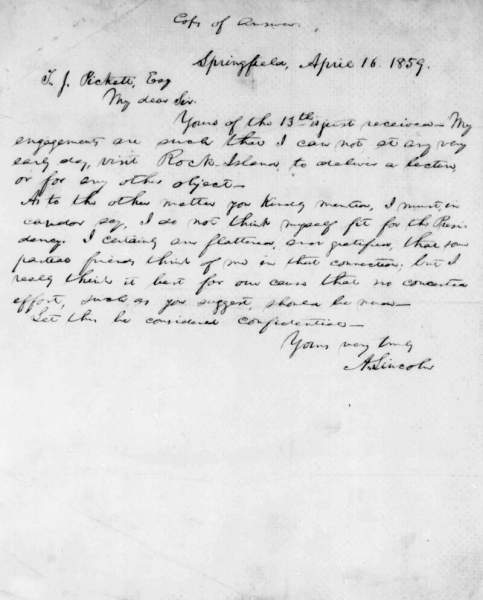 Copy of Answer.
Springfield, April 16. 1859.
T. J. Pickett, Esq
My dear Sir.
Yours of the 13th is just received. My
engagements are such that I can not, at any very
early day, visit Rock-Island, to deliver a lecture,
or for any other object.
As to the other matter you kindly mention, I must, in
candor, say I do not think myself fit for the Presi
dency. I certainly am flattered, and gratified, that some
partial friends think of me in that connection; but I
really think it best for our cause that no concerted
effort, such as you suggest, should be made.
Let this be considered confidential.
Yours very truly
A. Lincoln